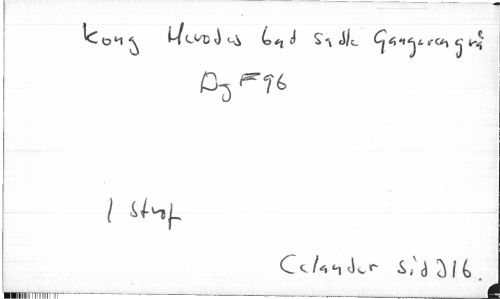 Kong Herodes bad sadle Gangaren grå
DgF 96
1 Strof
Celander sid 216.